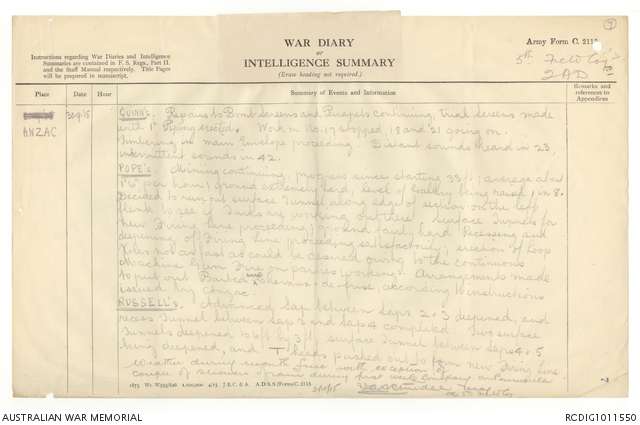 7
WAR DIARY
or
INTELLIGENCE SUMMARY
(Erase heading not required.)
Army Form C. 2118
Instructions regarding War Diaries and Intelligence
Summaries are contained in F. S. Regs., Part II.
and the Staff Manual respectively. Title Pages
will be prepared in manuscript.
5th Field Coy
2AD
Place
Date
Hour
Summary of Events and Information
Remarks and
references to
Appendices
ANZAC
QUINN'S. Repairs to Bomb Screens and Parapets continuing, trial screens made
with 1" Piping erected. Work in No. 17 stopped, 18 and 21 going on.
Timbering in main Envelope proceeding. Distant sounds heard in 23,
intermittent sounds in 42.
POPE'S. Mining continuing, progress since starting
per hour; ground extremely hard, level of Gallery being raised in 8.
Decided to run out surface Tunnel along edge of section on the left
flank to see if Turks are working out there. Surface Tunnels for
new Firing Line proceeding, ground fairly hard. Recessing and
deepening of Firing Line proceeding satisfactorily; erection of Loop
Holes not as fast as could be desired owing to the continuous
Machine Gun Fire on parties working. Arrangements made
to put out Barbed wire defense, according to instructions
issued by
RUSSELL'S. Advanced Sap between Saps 2 & 3 deepened, and
recess Tunnel between Sap 3 and Sap 4 completed. Two surface
Tunnels deepened to 6ft by 3ft, surface Tunnel between Saps 4 & 5
being deepened, and T heads pushed out to form new Firing Line
Weather during month fine with exception of
couple of showers of rain during first week
1875 Wt. W593/826 1,000,000 4/15 J.B.C. & A. A.D.S.S./Forms/C. 2118.
AUSTRALIAN WAR MEMORIAL
RCDIG1011550